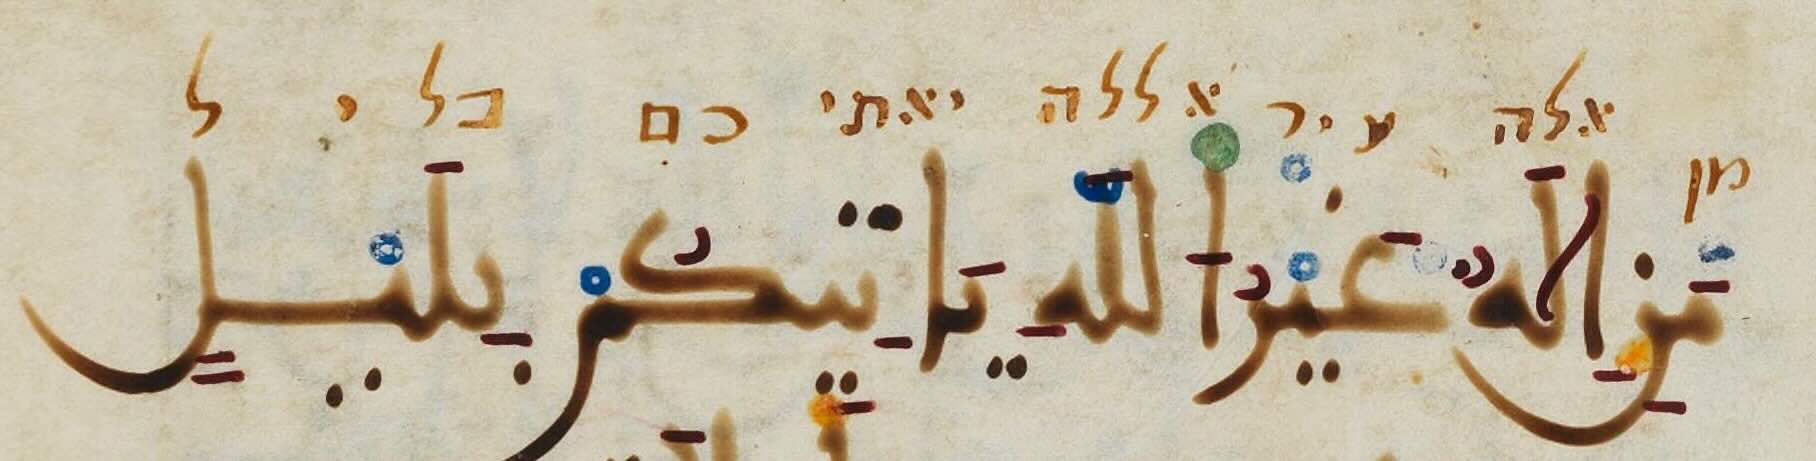 מן אלה עיר אללה יאתי כם בל י ל
مَنِ اِلَٰهٌ غَيْرُ اللَّهِ يَاتِيكُمْ بِلَيْلٍ